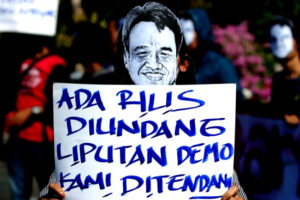 ADA RILIS
DIUNDANG
LIPUTAN DEMO
KAMI DITENDANG